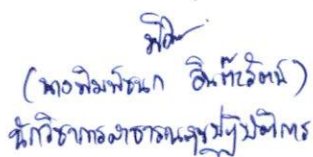 (นางพิมพ์ชนก อินต๊ะรัตน์)
นักวิชาการสาธารณสุขปฏิบัติการ